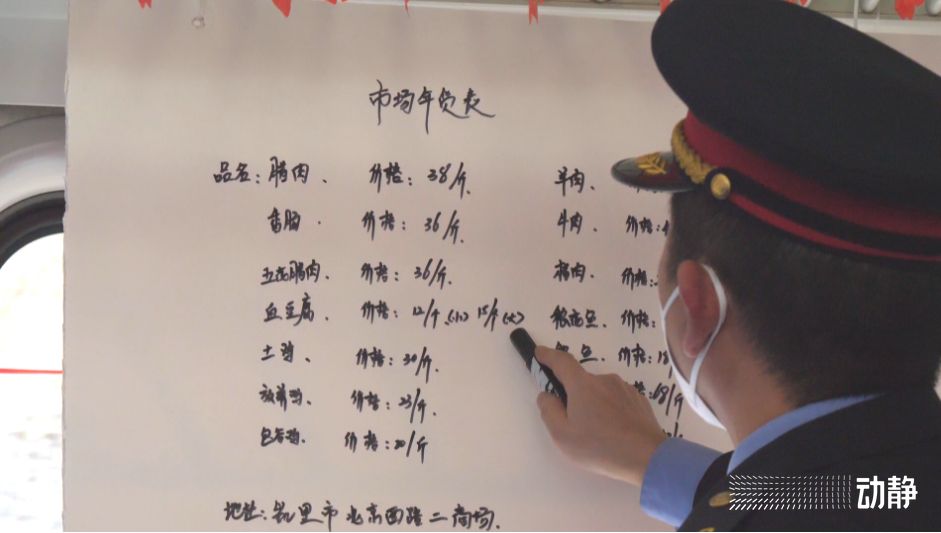 市场年货表
品名：腊肉、 价格：38/斤. 羊肉、
香肠. 价格：36/斤. 牛肉、 价格：4
五花腊肉、 价格：36/斤. 猪肉. 价格：
血豆腐、 价格：12/个(小) 15/个(大) 价格：
土鸡、 价格：30/斤. 鱼、 价格：18
放养鸡、 价格：23/斤. 68/斤
包谷鸡. 价格：20/斤
地址：凯里市北京西路二商场.
动静